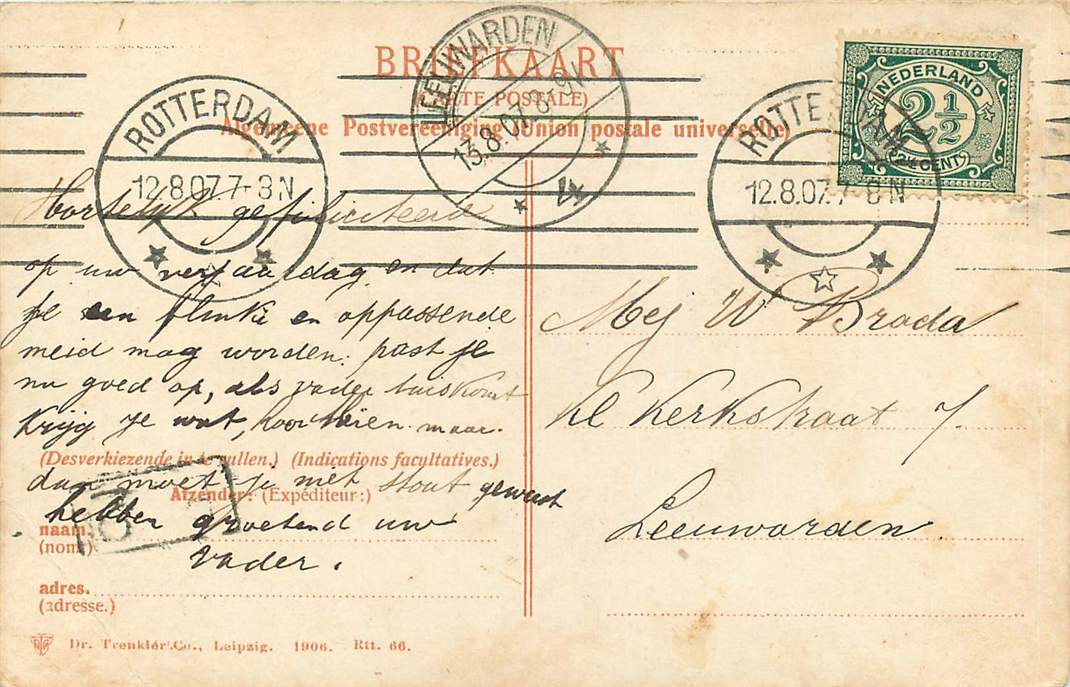 BRIEFKAART
(CARTE POSTALE)
Algemeene Postvereeniging (Union postale universelle)
LEEUWARDEN
13.8.07.8-9V
4
ROTTERDAM
12.8.07.7-8N
ROTTERDAM
12.8.07.7-8N
NEDERLAND
2½
2½ CENT
Hartelijk gefiliciteerd
op uw verjaardag en dat
je een flinke en oppassende
meid mag worden. past je
nu goed op, als vader tuis komt
krijg je wat, hoor Mien. maar.
(Desverkiezende in te vullen.) (Indications facultatives.)
dan moet je niet stout geweest
Afzender: (Expéditeur:)
hebben groetend uw
naam.
(nom).
vader.
adres.
(adresse.)
Mej W Brada
Kl Kerkstraat 7.
Leeuwarden
Dr. Trenkler Co., Leipzig. 1906. Rtt. 66.